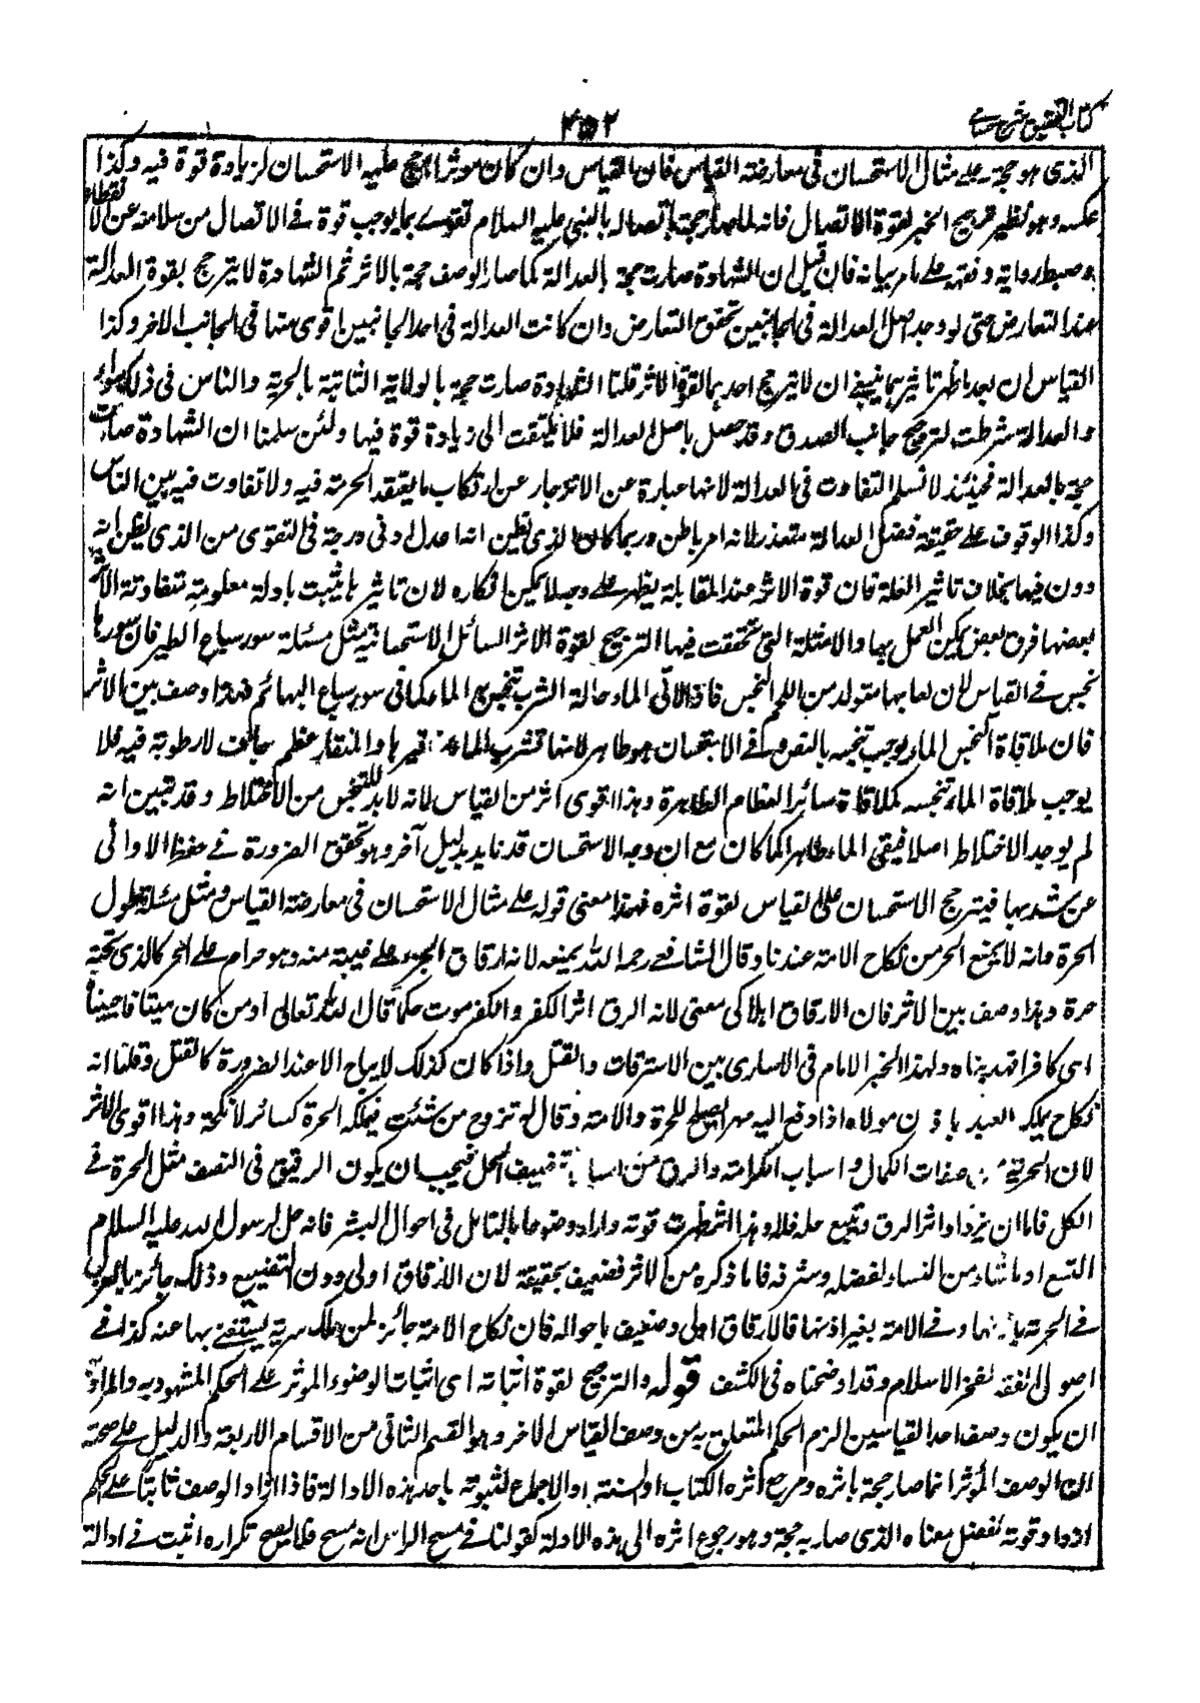 كتاب التحقيق شرح حسامى
٢٥٢
الذى هو حجة على مثال الاستحسان فى معارضة القياس فان القياس وان كان موثرا رجح عليه الاستحسان لزيادة قوة فيه وكذا
عكسه وهو نظير ترجيح الخبر لقوة الاتصال فانه لما صار حجة باتصاله بالنبى عليه السلام تقوى بما يوجب قوة فى الاتصال من سلامته عن الانقطاع
وضبط راويه وفقهه على ما مر بيانه فان قيل ان الشهادة صارت حجة بالعدالة كما صار الوصف حجة بالاثر ثم الشهادة لا يترجح بقوة العدالة
عند التعارض حتى لو وجد اصل العدالة فى الجانبين تحقق التعارض وان كانت العدالة فى احد الجانبين اقوى منها فى الجانب الاخر وكذا
القياسان بعد ما ظهر تاثيرهما ينبغى ان لا يترجح احدهما لقوة الاثر قلنا الشهادة صارت حجة بالولاية الثابتة بالحرية والناس فى ذلك سواء
والعدالة شرطت لترجح جانب الصدق وقد حصل باصل العدالة فلا يلتفت الى زيادة قوة فيها ولئن سلمنا ان الشهادة صارت
حجة بالعدالة فحينئذ لا نسلم التفاوت فى العدالة لانها عبارة عن الانزجار عن ارتكاب ما يعتقد الحرمة فيه ولا تفاوت فيه بين الناس
وكذا الوقوف على حقيقة فضل العدالة متعذر لانه امر باطن وربما كان الذى يظن انه اعدل ادنى درجة فى التقوى من الذى يظن انه
دونه فيها بخلاف تاثير العلة فان قوة الاثر عند المقابلة يظهر على وجه لا يمكن انكاره لان تاثيرها يثبت بادلة معلومة متفاوتة الاثر
بعضها فوق بعض يمكن العمل بها والامثلة التى تحققت فيها الترجيح لقوة الاثر المسائل الاستحسانية مثل مسئلة سور سباع الطير فان سورها
نجس فى القياس لان لعابها متولد من اللحم النجس فاذا لاقى الماء حالة الشرب تنجس الماء كما فى سور سباع البهائم فهذا وصف بين الاثر
فان ملاقاة النجس الماء يوجب تنجسه بالنص وفى الاستحسان هو طاهر لانها تشرب الماء بمنقارها والمنقار عظم جاف لا رطوبة فيه فلا
يوجب ملاقاة الماء تنجسه كملاقاة سائر العظام الطاهرة وهذا اقوى اثر من القياس لانه لا بد للتنجس من الاختلاط وقد تبين انه
لم يوجد الاختلاط اصلا فيبقى الماء طاهرا كما كان مع ان وجه الاستحسان قد تايد بدليل آخر وهو تحقق الضرورة فى حفظ الاوانى
عن شربها فيترجح الاستحسان على القياس لقوة اثره فهذا معنى قوله على مثال الاستحسان فى معارضة القياس ومثل مسئلة طول
الحرة فانه لا يمنع الحر من نكاح الامة عندنا وقال الشافعى رحمه الله يمنعه لانه ارقاق الجزء على غيبة منه وهو حرام على الحر كالذى تحته
حرة وهذا وصف بين الاثر فان الارقاق اهلاك معنى لانه الرق اثر الكفر والكفر موت حكما قال الله تعالى او من كان ميتا فاحييناه
اى كافرا فهديناه ولهذا الخبر الامام فى الاسارى بين الاسترقاق والقتل واذا كان كذلك لا يباح الا عند الضرورة كالقتل وقلنا انه
نكاح يملكه العبد باذن مولاه اذا دفع اليه مهرا يصلح للحرة والامة وقال تزوج من شئت فيملكه الحرة كسائر الانكحة وهذا اقوى الاثر
لان الحرية من صفات الكمال واسباب الكرامة والرق من اسباب تنصيف الحل فيجب ان يكون الرقيق فى النصف مثل الحرة فى
الكل فاما ان يزداد اثر الرق ويتسع حله فلا وهذا اثر ظهرت قوته وازداد وضوحا بالتامل فى احوال البشر فانه حل لرسول الله عليه السلام
التسع او ما شاء من النساء لفضله وشرفه فاما ما ذكره من الاثر فضعيف بحقيقته لان الارقاق اولى دون التضييع وذلك جائز بالعزل
فى الحرة باذنها وفى الامة بغير اذنها فالارقاق اولى وضعيف باحواله فان نكاح الامة جائز لمن ملك سرية يستغنى بها عنه كذا فى
اصول الفقه لفخر الاسلام وقد اوضحناه فى الكشف قوله والترجيح لقوة اثباته اى اثبات الوصف الموثر على الحكم المشهود به والمراد
ان يكون وصف احد القياسين الزم للحكم المتعلق به من وصف القياس الاخر وهو القسم الثانى من الاقسام الاربعة والدليل على صحته
ان الوصف الموثر انما صار حجة باثره ومرجع اثره الكتاب او السنة او الاجماع لثبوته باحد هذه الادلة فاذا ازداد الوصف ثباتا على الحكم
ازداد قوته لفضل معناه الذى صار به حجة وهو رجوع اثره الى هذه الادلة كقولنا فى مسح الراس انه مسح فلا يصح تكراره اثبت فى دلالة